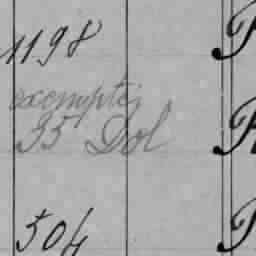 1198
exemptej
35 Dol
504